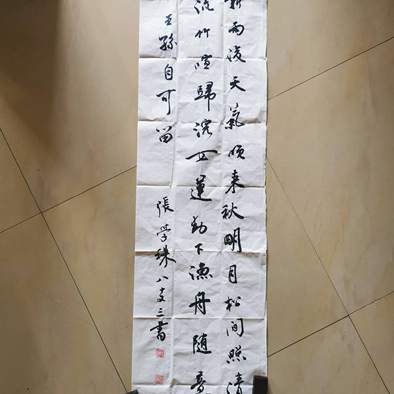 新雨後天氣晚来秋明月松间照清
流竹喧歸浣女蓮動下漁舟隨意
王孫自可留 張学 八 三書